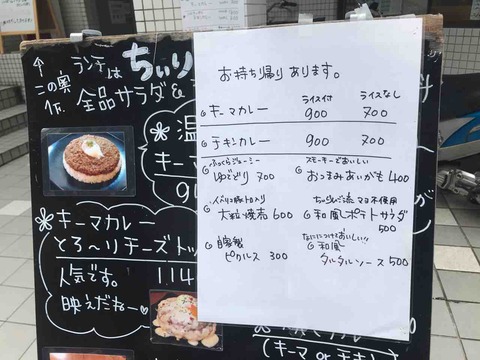 ↑ ランチは ちぃり
この奥
1F. 全品サラダ&
お持ち帰り あります。
ライス付 ライスなし
キーマカレー 900 700
チキンカレー 900 700
ふっくらジューシー
ゆでどり 700
スモーキーでおいしい
おつまみあいがも 400
イベリコ豚トロ入り
大粒焼売 600
マヨ不使用
和風ポテトサラダ
500
自家製
ピクルス 300
なににつけてもおいしい!!
和風
タルタルソース 500
温
キーマ
キーマカレー
とろ〜りチーズトッ
人気です。 114
映えだねー♡
(キーマ or チキ